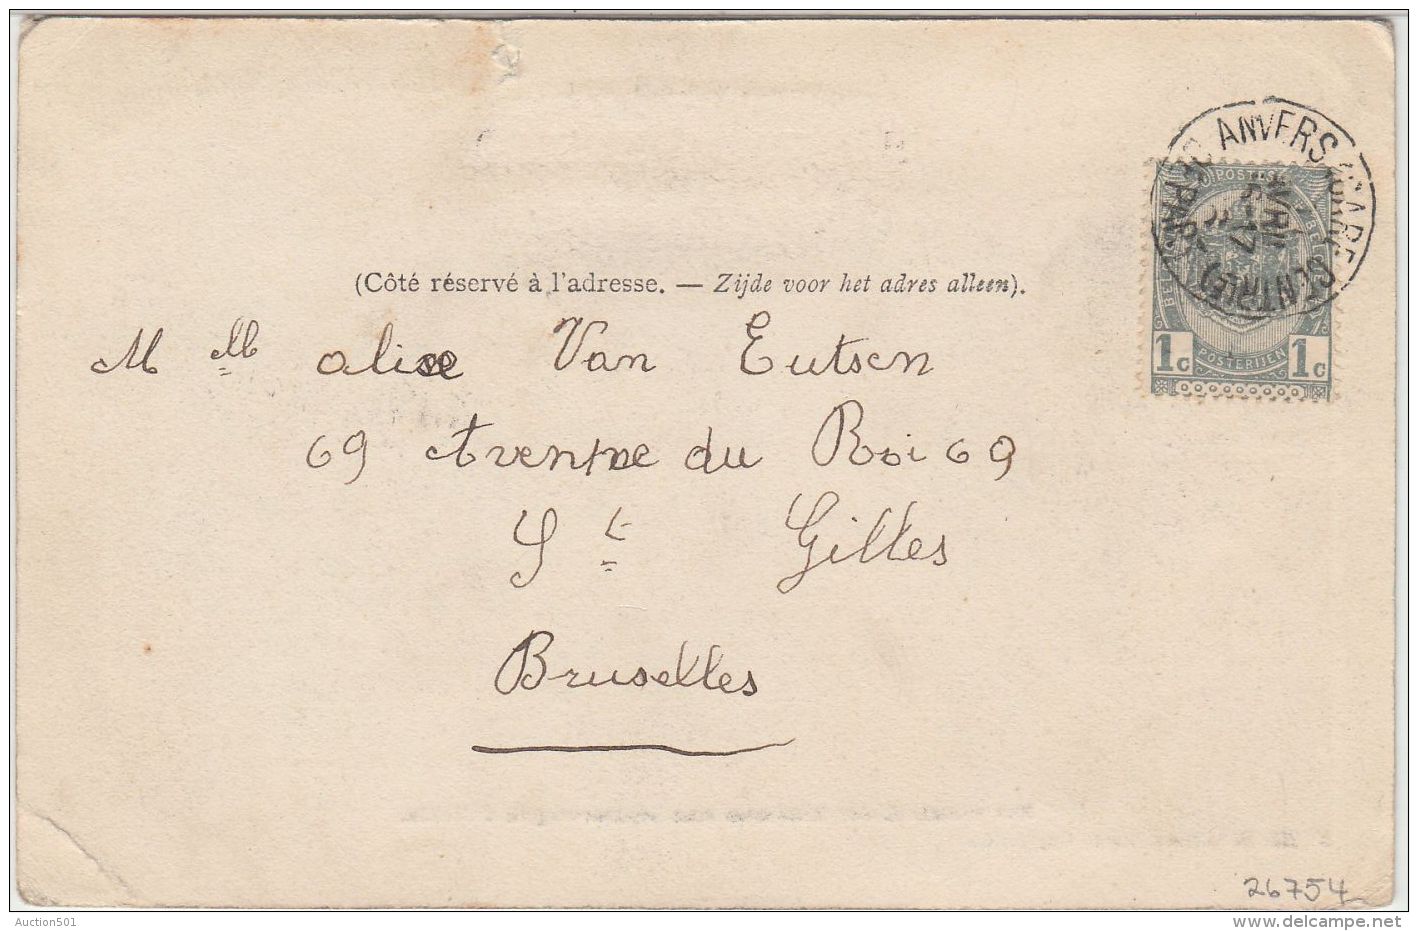 ANVERS (GARE CENTRALE)
DEPART
AVRIL
POSTES
1c POSTERIJEN 1c
(Côté réservé à l'adresse. — Zijde voor het adres alleen).
M lle alice Van Eutsen
69 Avenue du Roi 69
St Gilles
Bruselles
26754
Auction501
www.delcampe.net